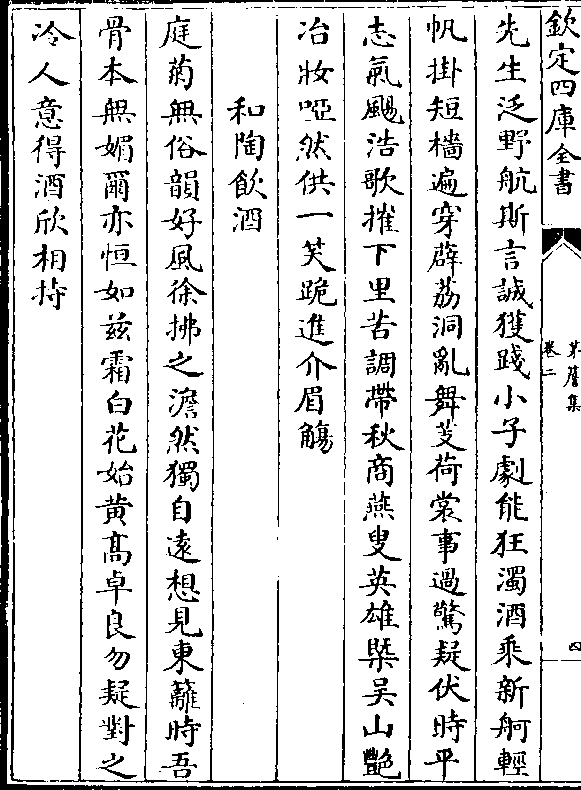 欽定四庫全書
茅簷集
卷二
四
先生泛野航斯言誠獲踐小子劇能狂濁酒乘新舸輕
帆掛短檣遍穿薜荔洞亂舞芰荷裳事過驚疑伏時平
志氣颺浩歌摧下里苦調帶秋商燕叟英雄槩吳山艷
冶妝啞然供一笑跪進介眉觴
和陶飲酒
庭菊無俗韻好風徐拂之澹然獨自遠想見東籬時吾
骨本無媚爾亦恒如兹霜白花始黄髙卓良勿疑對之
冷人意得酒欣相持